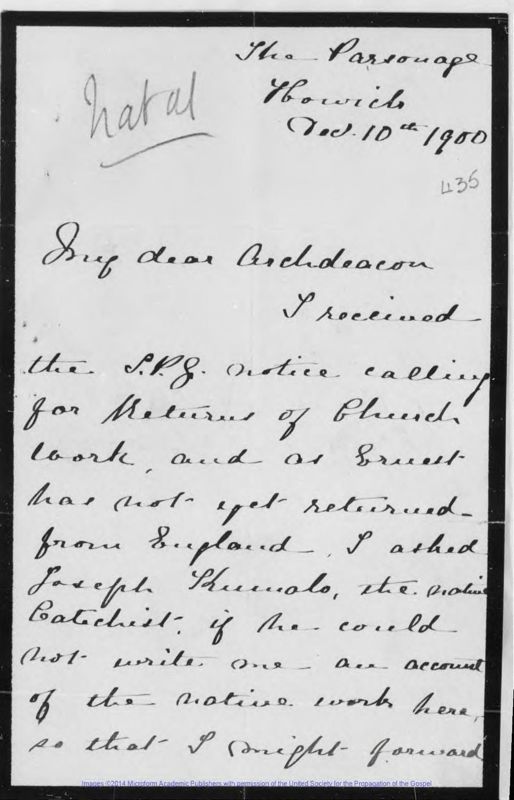 The Parsonage
Howick
Natal
Dec. 10th 1900
435
My dear Archdeacon
I received
the S.P.G. notice calling
for Returns of Church
work, and as Ernest
has not yet returned
from England, I asked
Joseph Kumalo, the native
Catechist, if he could
not write me an account
of the native work here,
so that I might forward
Images ©2014 Microform Academic Publishers with permission of the United Society for the Propagation of the Gospel